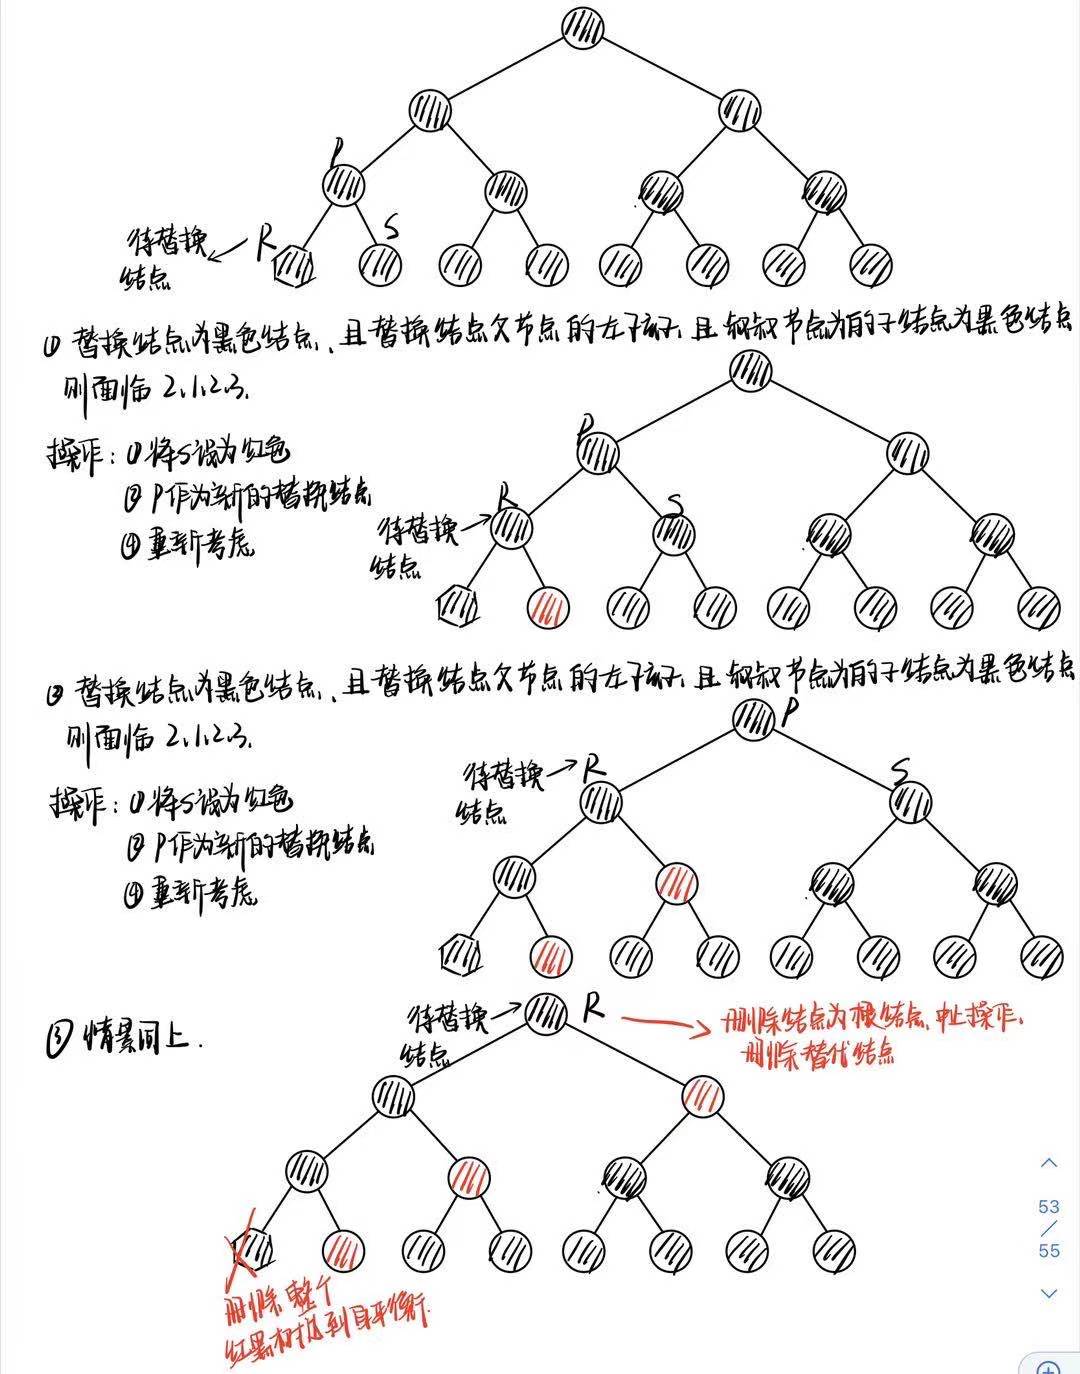 P
S
R
待替换
结点
① 替换结点为黑色结点、且替换结点父节点的左子孩子、且叔叔节点为的子结点为黑色结点
则面临 2.1.2.3.
P
操作: ① 将S设为红色
② P作为新的替换结点
R
S
待替换
结点
④ 重新考虑
② 替换结点为黑色结点、且替换结点父节点的左子孩子、且叔叔节点为的子结点为黑色结点
则面临 2.1.2.3.
P
待替换
结点
R
S
操作: ① 将S设为红色
② P作为新的替换结点
④ 重新考虑
③ 情景同上.
待替换
结点
R
删除结点为根结点、中止操作、
删除替代结点
删除 整个
红黑树达到自平衡.
53
/
55